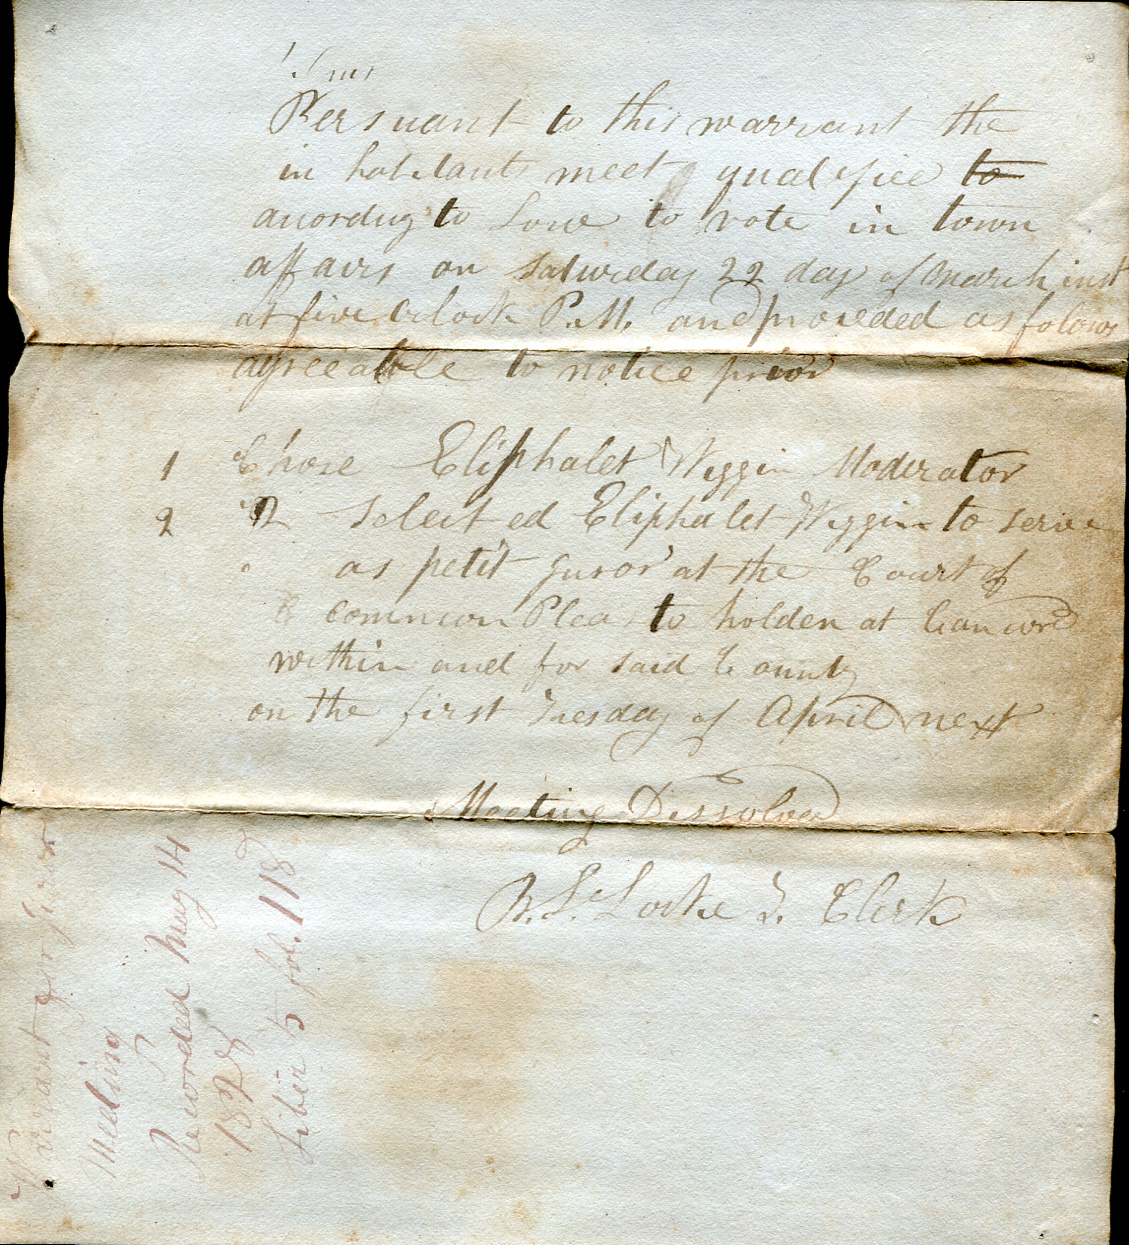 Persuant to this warrant the
in habitants meet qualifiee to
acording to Lowe to vote in town
affairs on Saturday 22 day of March inst
at five Oclock P.M. and proceded as folows
agreeable to notice prior
1 Chose Eliphalet Wiggin Moderator
2 2 Selected Eliphalet Wiggin to serve
as petit juror at the Court of
Common Pleas to holden at Concord
within and for said County
on the first Tuesday of April next
Meeting Dissolved
B. L. Locke T. Clerk
Warrant for Juror
Meeting
Recorded May 14
1828
Liber 5 fol. 118